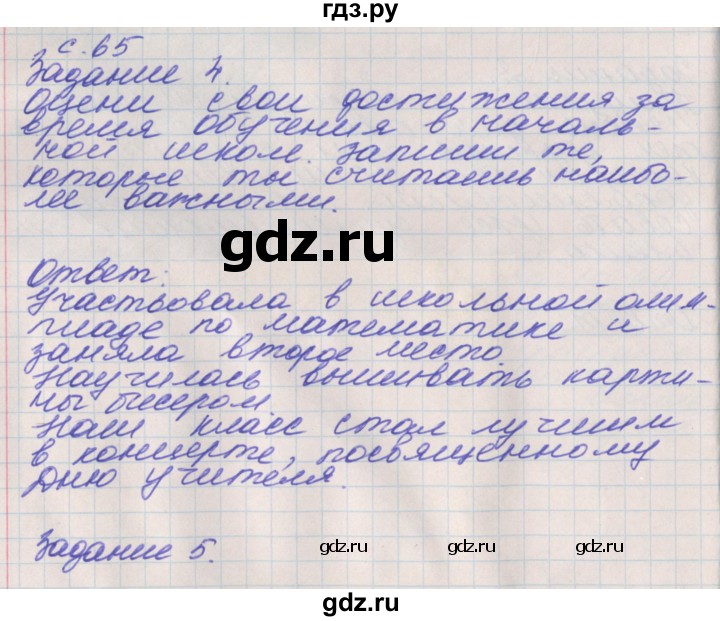 гдз.ру
с. 65
Задание 4.
Оцени свои достижения за
время обучения в началь-
ной школе. Запиши те,
которые ты считаешь наибо-
лее важными.
gdz.ru
Ответ:
Участвовала в школьной олим-
пиаде по математике и
заняла второе место.
Научилась вышивать карти-
ны бисером.
Наш класс стал лучшим
в концерте, посвященному
Дню учителя.
Задание 5.
gdz.ru gdz.ru gdz.ru
gdz.ru